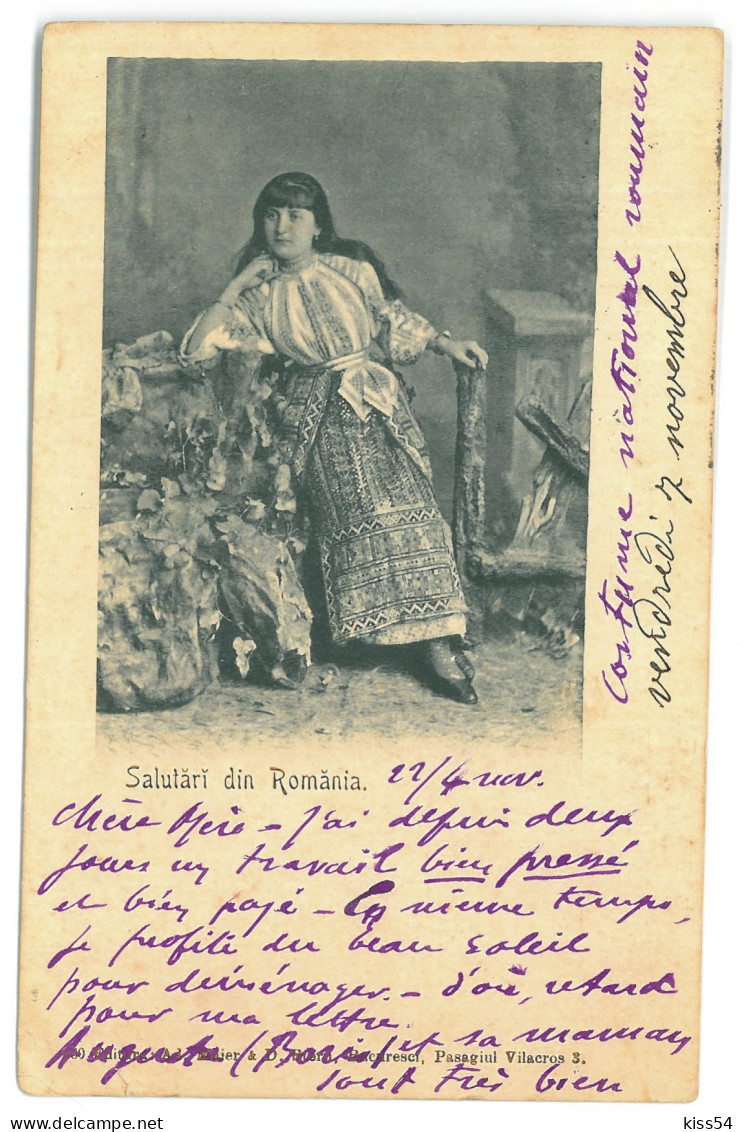 costume national roumain
vendredi 7 novembre
Salutări din România.
22/4 nov.
Chère Mère – J'ai depuis deux
jours un travail bien pressé
et bien payé – En même temps,
je profite du beau soleil
pour déménager. – d'où, retard
pour ma lettre.
(Paris) et sa maman
sont très bien
Editura: Ad. Maier & D. Stern, Bucuresci, Pasagiul Vilacros 3.
kiss54